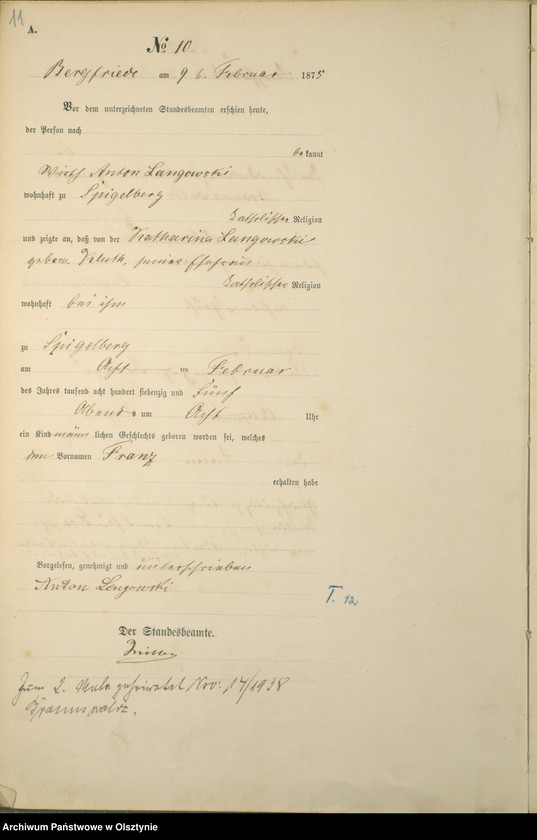 11
A.
No 10
Bergfriede am 9 t. Februar 1875
Vor dem unterzeichneten Standesbeamten erschien heute,
der Person nach
be kannt
Wirth Anton Langowski
wohnhaft zu Spigelberg
katholischer Religion
und zeigte an, daß von der Katharina Langowski
geborn. Kluth, seiner Ehefrau
katholischer Religion
wohnhaft bei ihm
zu Spigelberg
am Acht ten Februar
des Jahres tausend acht hundert siebenzig und fünf
Abend s um Acht Uhr
ein Kind männ lichen Geschlechts geboren worden sei, welches
den Vornamen Franz
erhalten habe
Vorgelesen, genehmigt und unterschrieben
Anton Langowski
T. 12
Der Standesbeamte.
Zum 2. Male geheiratet Nro: 17/1938
Archiwum Państwowe w Olsztynie